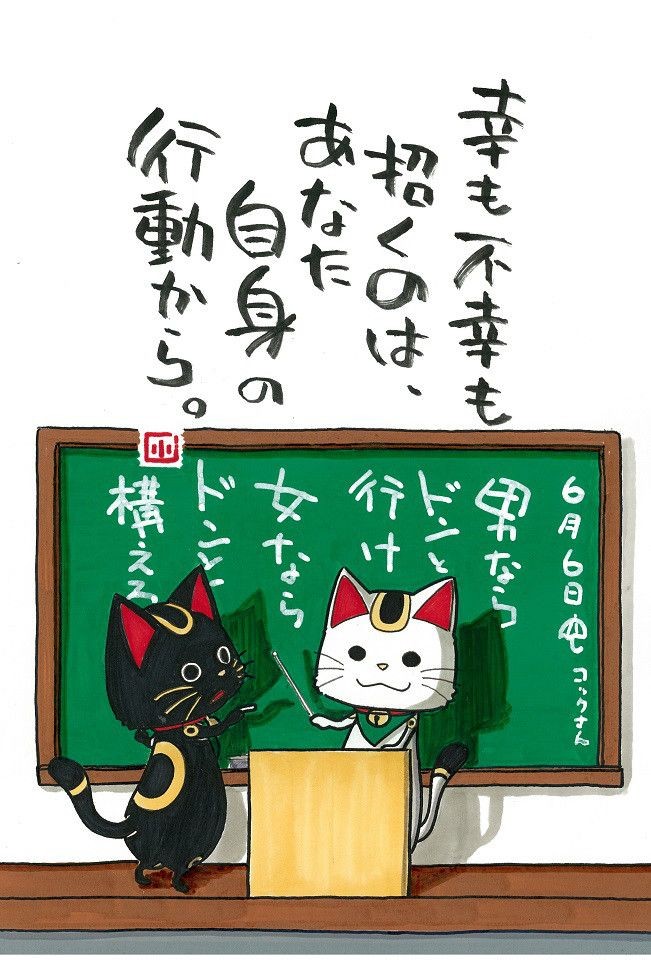 幸も不幸も
招くのは、
あなた
自身の
行動から。
小
6月6日 コックさん
男なら
ドンと
行け
女なら
ドンと
構えろ